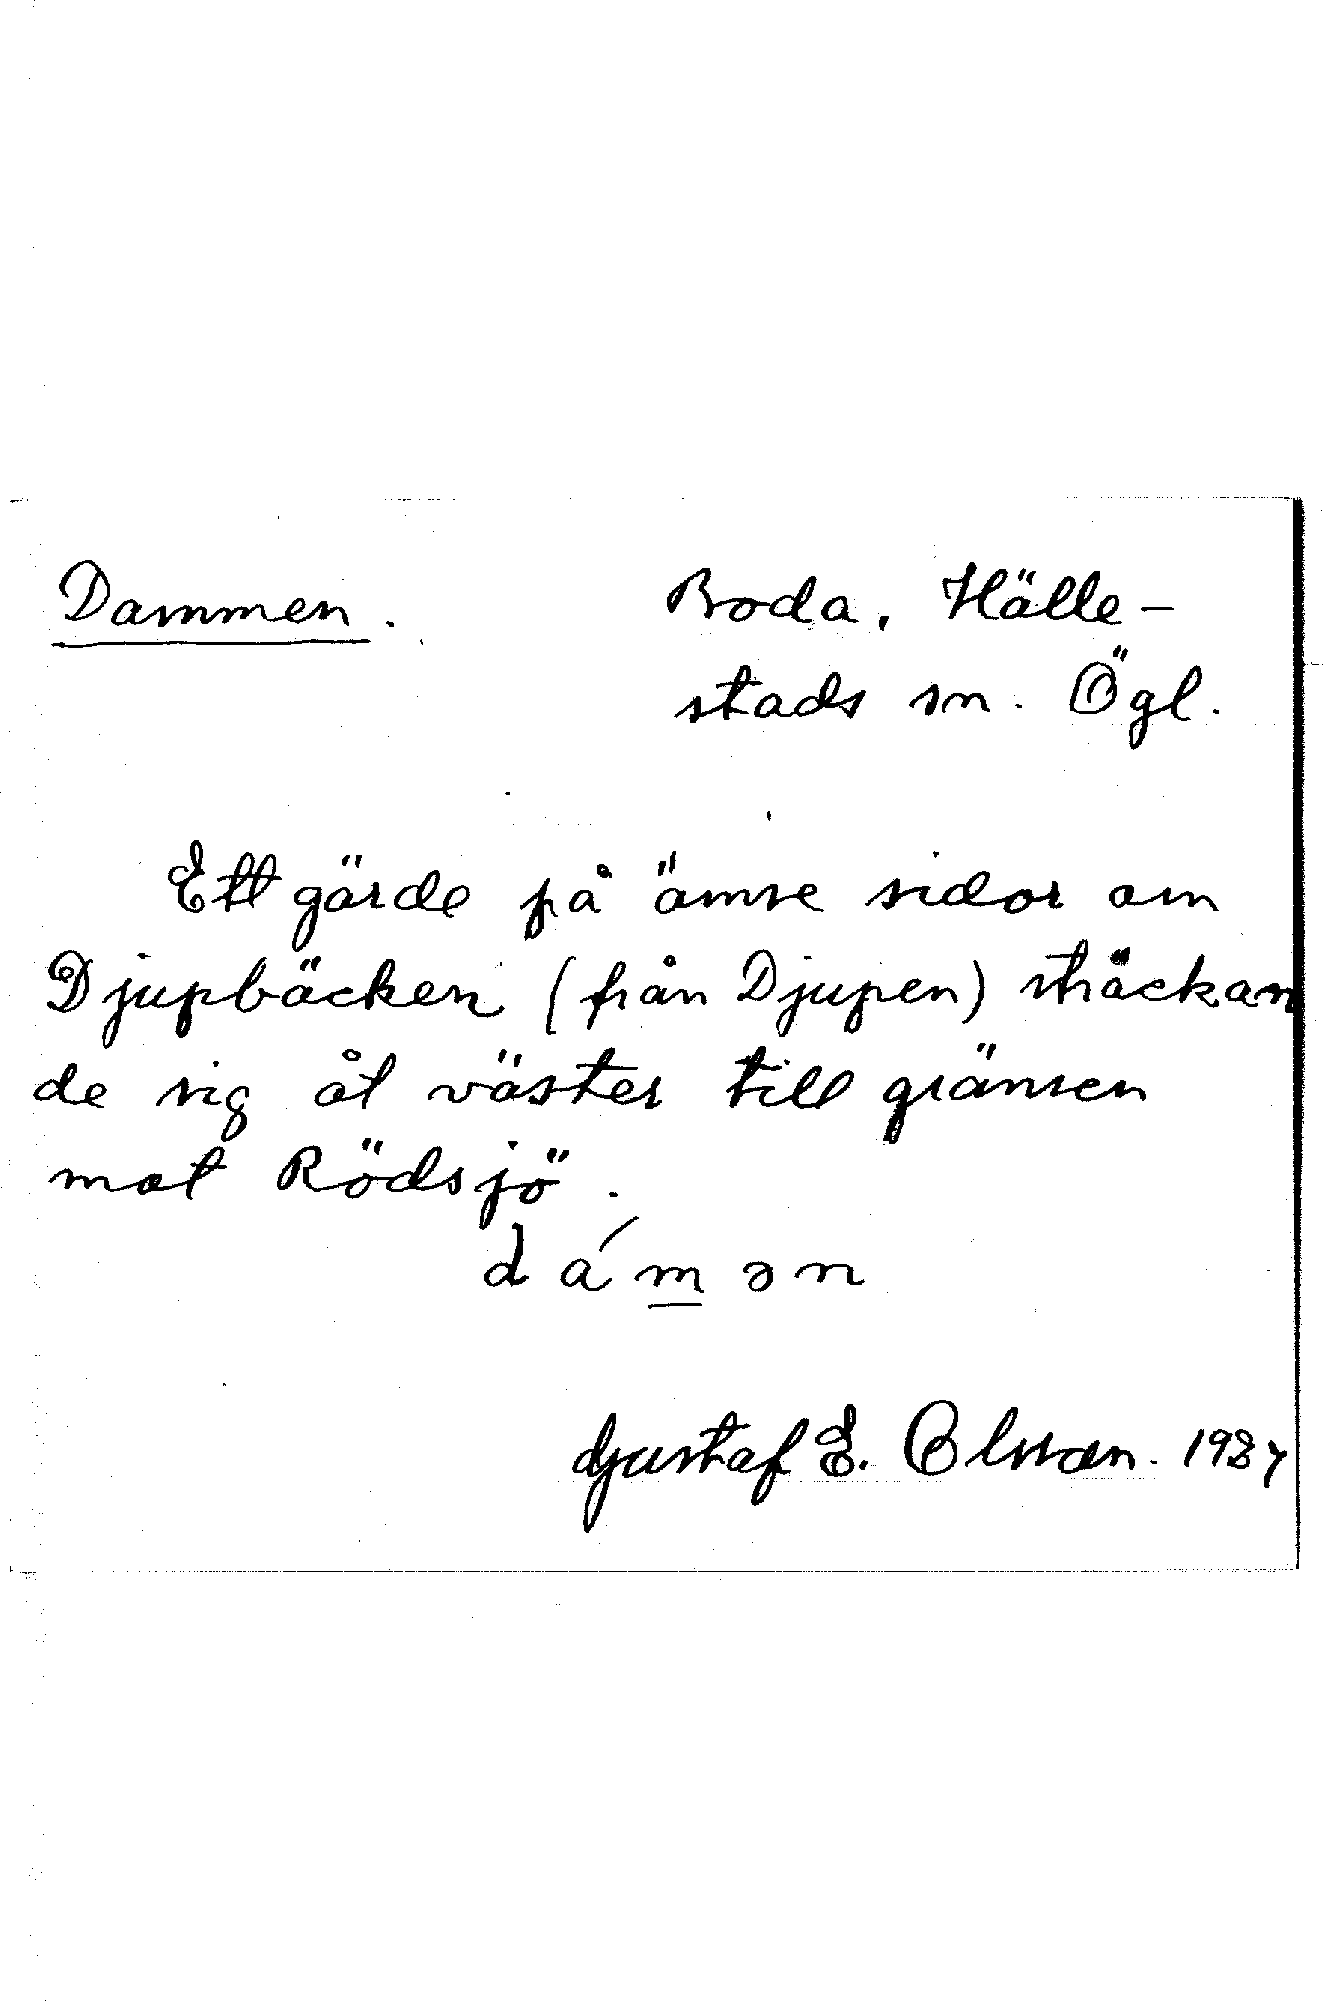 Dammen.
Boda, Hälle-
stads sn. Ögl.
Ett gärde på ömse sidor om
Djupbäcken (från Djupen) sträckan
de sig åt väster till gränsen
mot Rödsjö.
dám̲ən
Gustaf E. Olsson. 1927